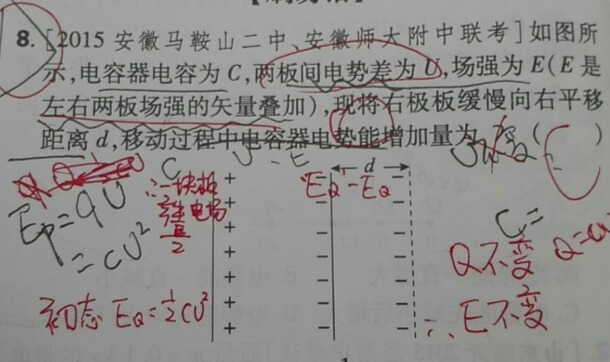 8. [2015 安徽马鞍山二中、安徽师大附中联考] 如图所
示,电容器电容为 C,两板间电势差为 U,场强为 E(E 是
左右两板场强的矢量叠加),现将右极板缓慢向右平移
距离 d,移动过程中电容器电势能增加量为 ( )
C
C U E
d
∴一块板
产生电场
E/2
EQ'-EQ
Ep=qU
=CU²
初态 EQ=½CU²
C=
Q不变
∴E不变